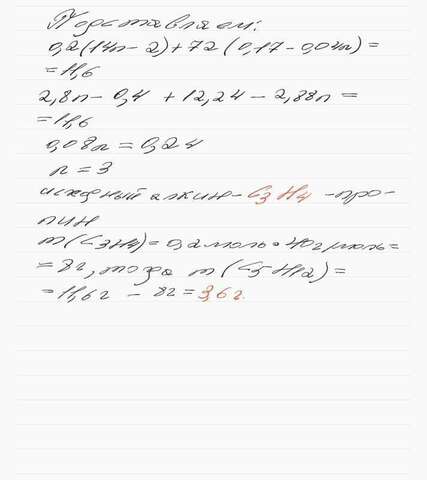 Подставляем:
0,2(14n-2)+72(0,17-0,04n)=
=11,6
2,8n-0,4+12,24-2,88n=
=11,6
0,08n=0,24
n=3
исходный алкин-C3H4-про-
пин
m(C3H4)=0,2моль*40г/моль=
=8г, тогда m(C5H12)=
=11,6г-8г=3,6г.